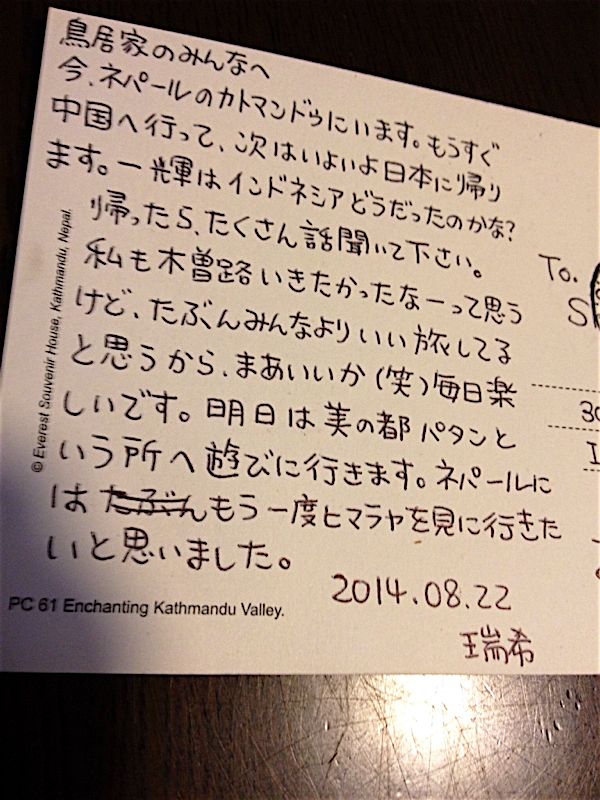 鳥居家のみんなへ
今、ネパールのカトマンドゥにいます。もうすぐ
中国へ行って、次はいよいよ日本に帰り
ます。一輝はインドネシアどうだったのかな?
帰ったら、たくさん話聞いて下さい。
私も木曽路いきたかったなーって思う
けど、たぶんみんなよりいい旅してる
と思うから、まあいいか(笑)毎日楽
しいです。明日は美の都パタンと
いう所へ遊びに行きます。ネパールに
はたぶんもう一度ヒマラヤを見に行きた
いと思いました。
2014.08.22
瑞希
PC 61 Enchanting Kathmandu Valley.
© Everest Souvenir House, Kathmandu, Nepal.
To.
S
30